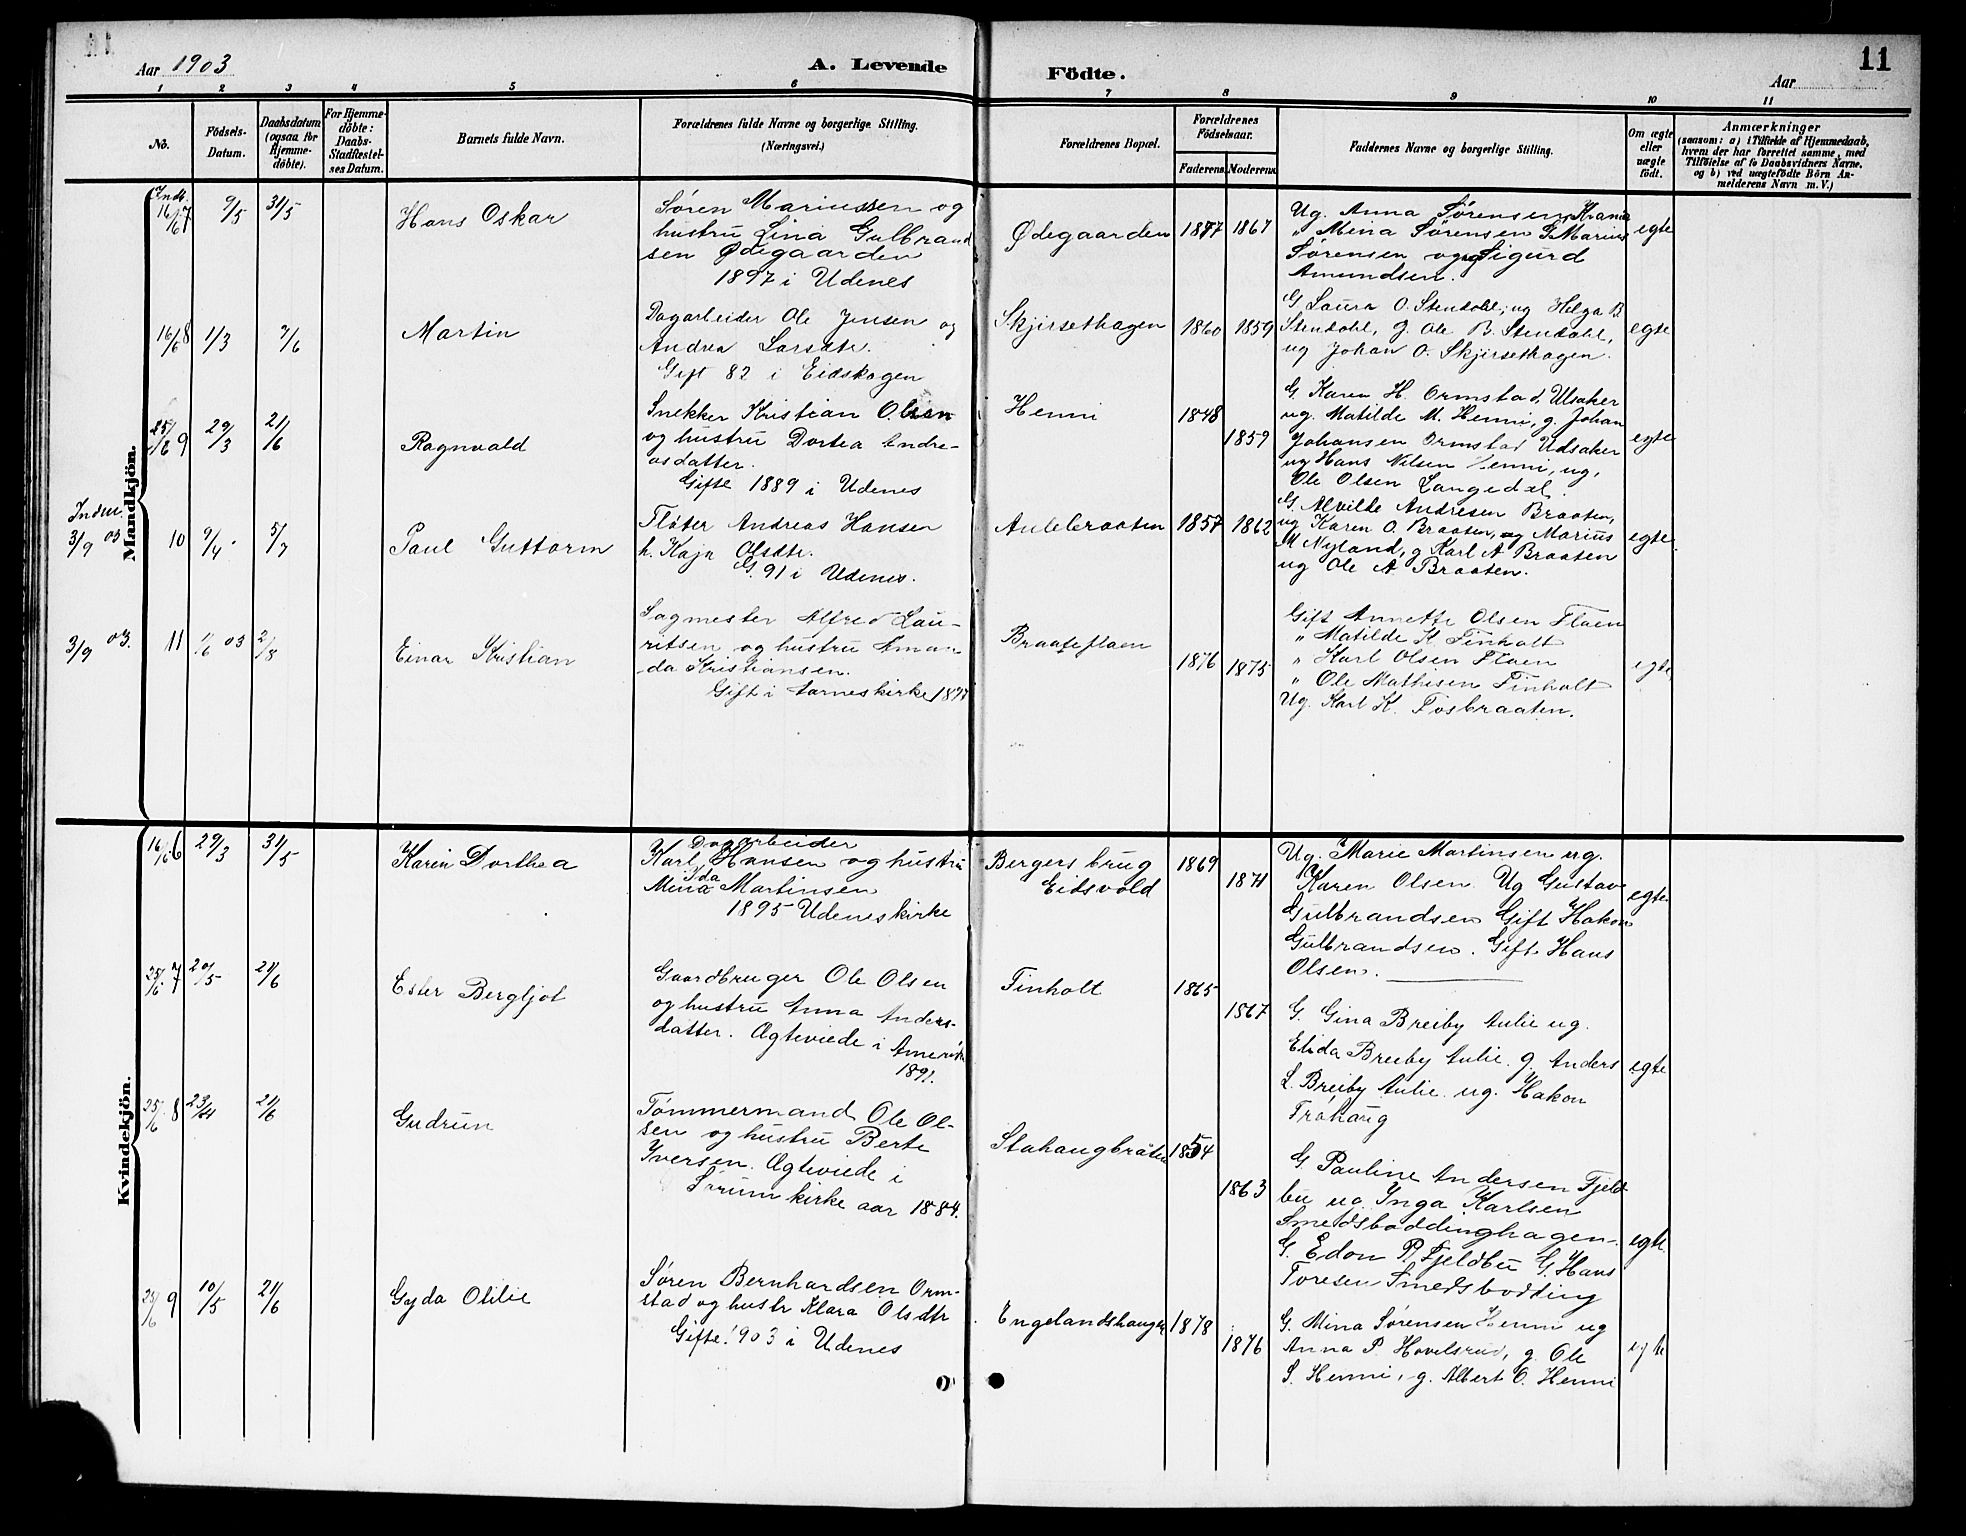 Aar 1903
A. Levende
Födte.
Aar
11
1 2 3 4 5 6 7 8 9 10 11
No.
Födsels-
Datum.
Daabsdatum
(ogsaa for
Hjemme-
döbte).
For Hjemme-
döbte:
Daabs-
Stadfæstel-
ses Datum.
Barnets fulde Navn.
Forældrenes fulde Navne og borgerlige Stilling.
(Næringsvei.)
Forældrenes Bopæl.
Forældrenes
Födselsaar.
Faderens. Moderens.
Faddernes Navne og borgerlige Stilling.
Om ægte
eller
uægte
födt.
Anmærkninger
(saasom: a) i Tilfælde af Hjemmedaab,
hvem der har forrettet samme, med
Tilföielse af to Daabsvidners Navne,
og b) ved uægtefödte Börn An-
melderens Navn m. V.)
Mandkjön.
Indt.
16/6 7 9/5 31/5
Hans Oskar
Søren Mariussen og
hustru Lina Gulbrand
sen Ødegaarden
1897 i Udenes
Ødegaarden 1877 1867
Ug. Anna Sørensen Krania
" Mina Sørensen G Marius
Sørensen og ug Sigurd
Amundsen.
egte
16/6 8 1/3 7/6
Martin
Dagarbeider Ole Jensen og
Andrea Larsdtr.
Gift 82 i Eidskogen
Skjirsethagen 1860 1859
G Laura O. Stendahl; ug Helga B.
Stendahl, g. Ole B. Stendahl,
ug Johan O. Skjirsethagen.
egte
25/6 9 29/3 21/6
Ragnvald
Snekker Kristian Olsen
og hustru Dortea Andre-
asdatter.
Gifte 1889 i Udenes
Henni 1848 1859
G Karen H. Ormstad, Ulsaker
ug. Matilde M. Henni, g. Johan
Johansen Ormstad Udsaker
ug Hans Nilsen Henni, ug,
Ole Olsen Langedal.
egte
Indm.
3/9 03 10 9/4 5/7
Paul Guttorm
Fløter Andreas Hansen
h. Kaja Olsdtr.
G. 91 i Udenes.
Auliebraaten 1857 1862
G. Alvilde Andresen Braaten,
ug Karen O. Braaten, ug Marius
M Nyland, g Karl A Braaten
ug Ole A Braaten.
egte
3/9 03. 11 1/6 03 2/8
Einar Kristian
Sagmester Alfred Lau-
ritsen og hustru Aman
da Kristiansen.
Gift i Aarneskirke 1897
Braateflaen 1876 1875
Gift Annette Olsen Flaen
" Matilde K Finholt
" Karl Olsen Flaen
" Ole Mathisen Finholt
Ug. Karl K. Fosbraaten.
egte
Kvindekjön.
16/6 6 29/3 31/5
Karin Dorthea
Dagarbeider
Karl Hansen og hustru
Ida
Mina Martinsen
1895 Udeneskirke
Bergersbrug
Eidsvold
1869 1871
Ug. Marie Martinsen ug.
Karen Olsen. Ug Gustav
Gulbrandsen Gift Hakon
Gulbrandsen. Gift Hans
Olsen.
egte
25/6 7 20/5 21/6
Ester Bergljot
Gaardbruger Ole Olsen
og hustru Anna Anders-
datter. Ægteviede i Amerika
1891.
Finholt 1865 1867
G. Gina Breiby Aulie ug.
Elida Breiby Aulie. g. Anders
L. Breiby Aulie. ug. Hakon
Frøhaug
egte
25/6 8 23/4 21/6
Gudrun
Tømmermand Ole Ol-
sen og hustru Berte
Iversen. Ægteviede i
Sørum kirke aar 1884.
Stahaugbråten 1854 1863
G Pauline Andersen Fjeld
bu ug. Inga Karlsen
Smedsboddinghagen-
G. Edon P. Fjeldbu G. Hans
Toresen Smedsbodting
egte
25/6 9 10/5 21/6
Gyda Otilie
Søren Bernhardsen Orm-
stad og hustr Klara Olsdtr
Gifte 1903 i Udenes
Engelandshaugen 1878 1876
G. Mina Sørensen Henni ug
Anna P. Hovelsrud, g. Ole
S. Henni, g. Albert O. Henni
egte